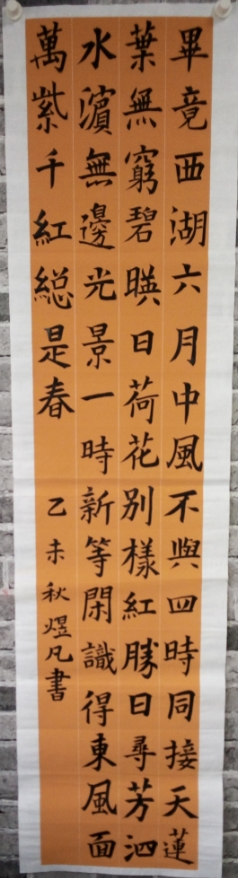 畢竟西湖六月中風不與四時同接天蓮
葉無窮碧暎日荷花别樣紅勝日尋芳泗
水濵無邊光景一時新等閑識得東風面
萬紫千紅総是春
乙未秋煜凡書